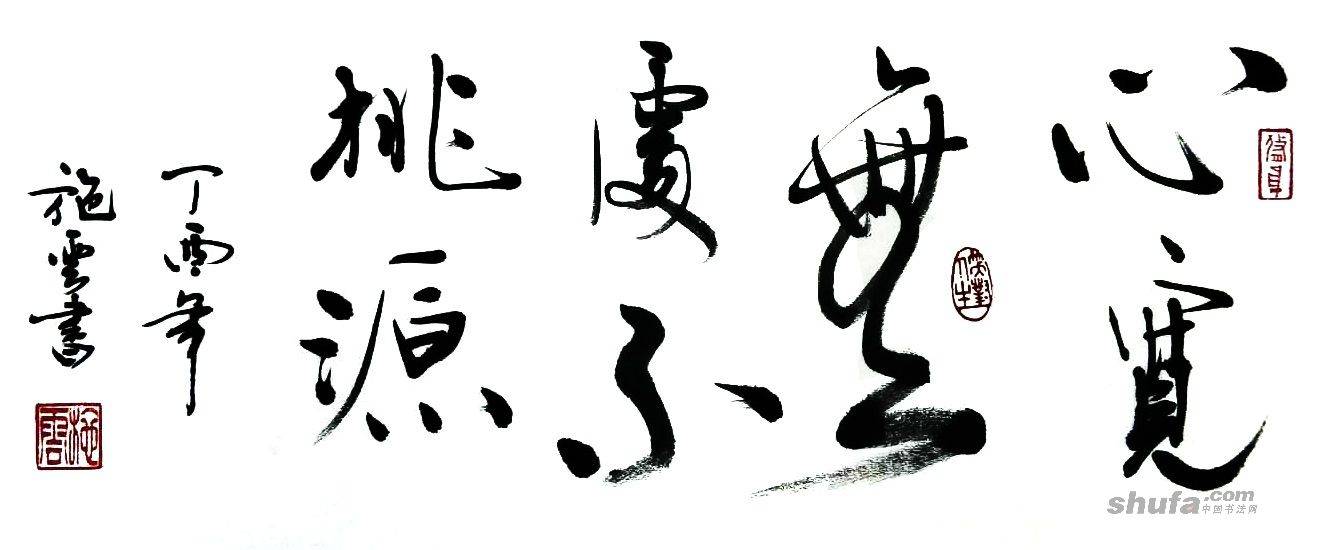 心寬
無
處不
桃源
丁酉年
施雲書
施雲
shufa.com
中国书法网